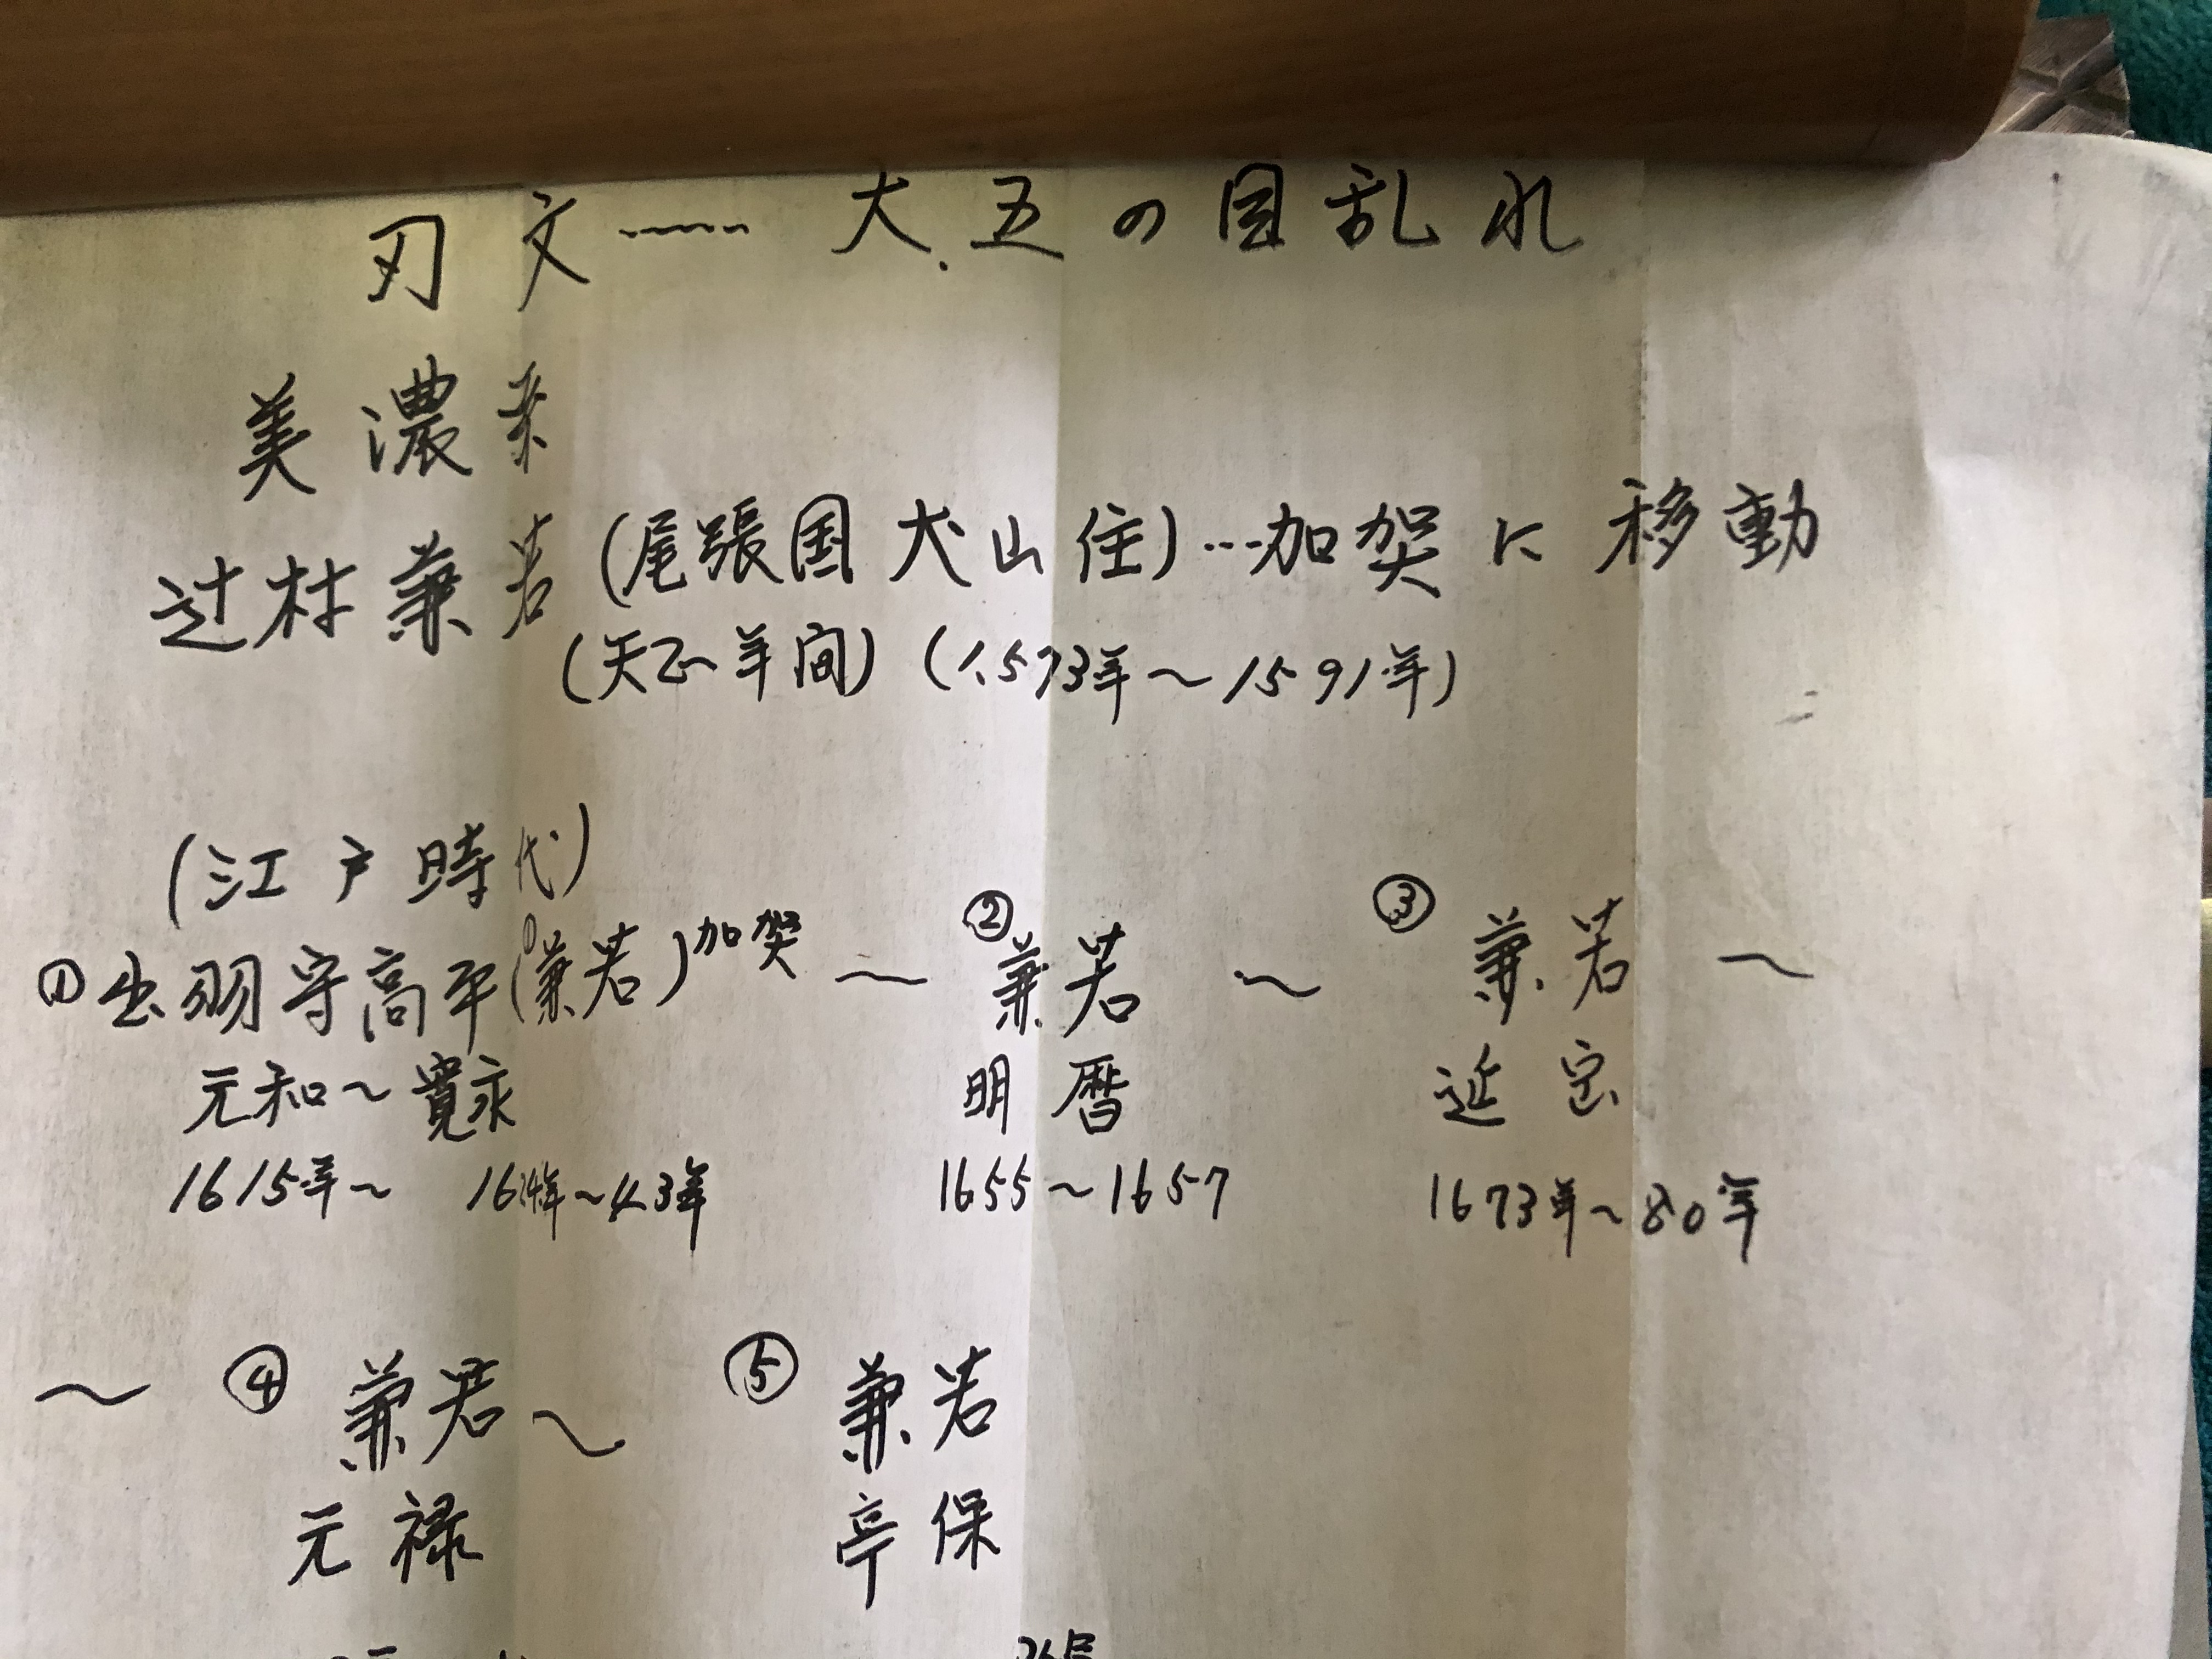 刃文……大五の目乱れ
美濃系
辻村兼若(尾張国犬山住)…加賀に移動
(天正年間)(1573年〜1591年)
(江戸時代)
①出羽守高平(兼若)加賀〜②兼若〜③兼若〜
元和〜寛永 明暦 延宝
1615年〜 1624年〜43年 1655〜1657 1673年〜80年
〜④兼若〜⑤兼若
元禄 享保